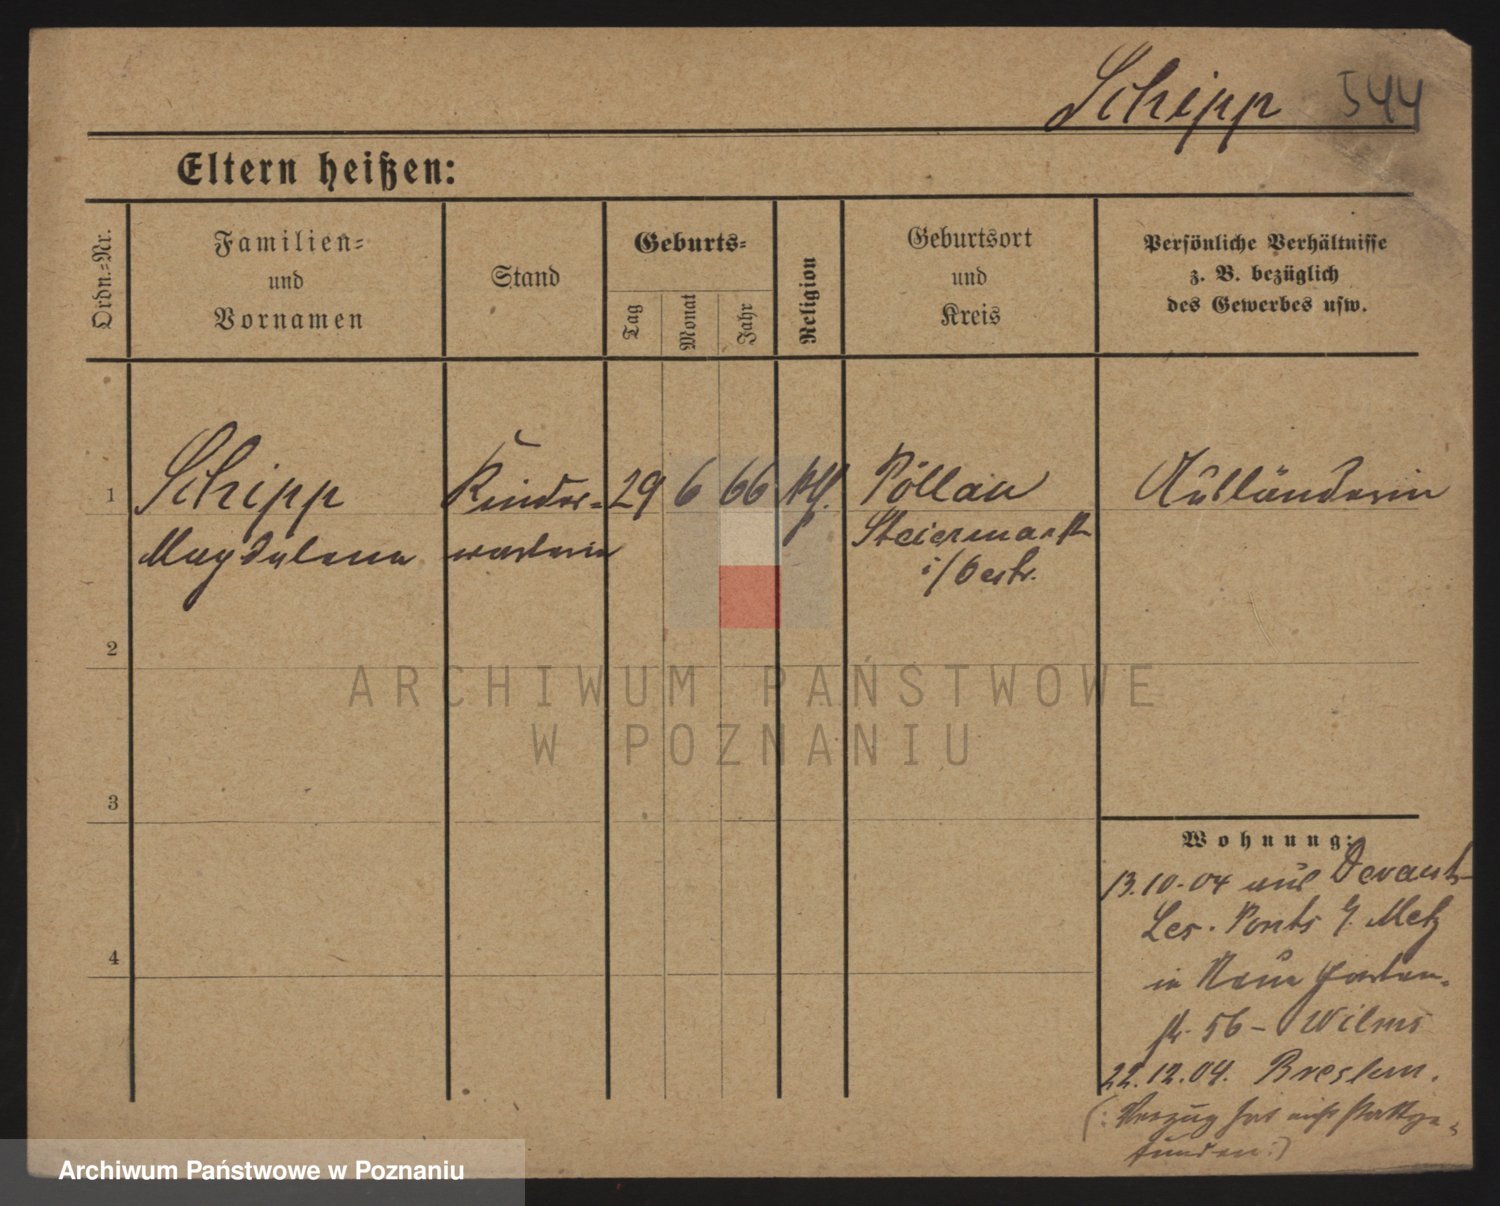 Schipp 544
Eltern heißen:
Ordn.-Nr.
Familien-
und
Vornamen
Stand
Geburts-
Tag
Monat
Jahr
Religion
Geburtsort
und
Kreis
Persönliche Verhältnisse
z. B. bezüglich
des Gewerbes usw.
1 Schipp Kinder- 29 6 66 kth. Pöllau Ausländerin
Magdalena wärterin Steiermark
i/Oestr.
2
3
4
Wohnung:
13.10.04 aus Devant-
Les-Ponts b. Metz
in Neue Garten-
str. 56 - Wilms
22.12.04. Breslau.
(: Verzug hat nicht stattge-
funden :)
ARCHIWUM PAŃSTWOWE
W POZNANIU
Archiwum Państwowe w Poznaniu